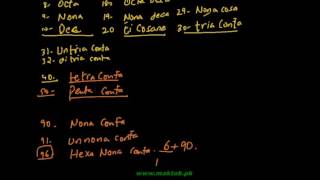 8- Octa 18- Octa deca
9- Nona 19- Nona deca 29- Nona cosa
10- Deca 20 Ei Cosane 30- tria Conta
31- Untria conta
32- ditria conta
40. tetra Conta
50- Penta Conta
90. Nona Conta
91. unnona Conta
96 Hexa Nona Conta. 6+90.
www.maktab.pk